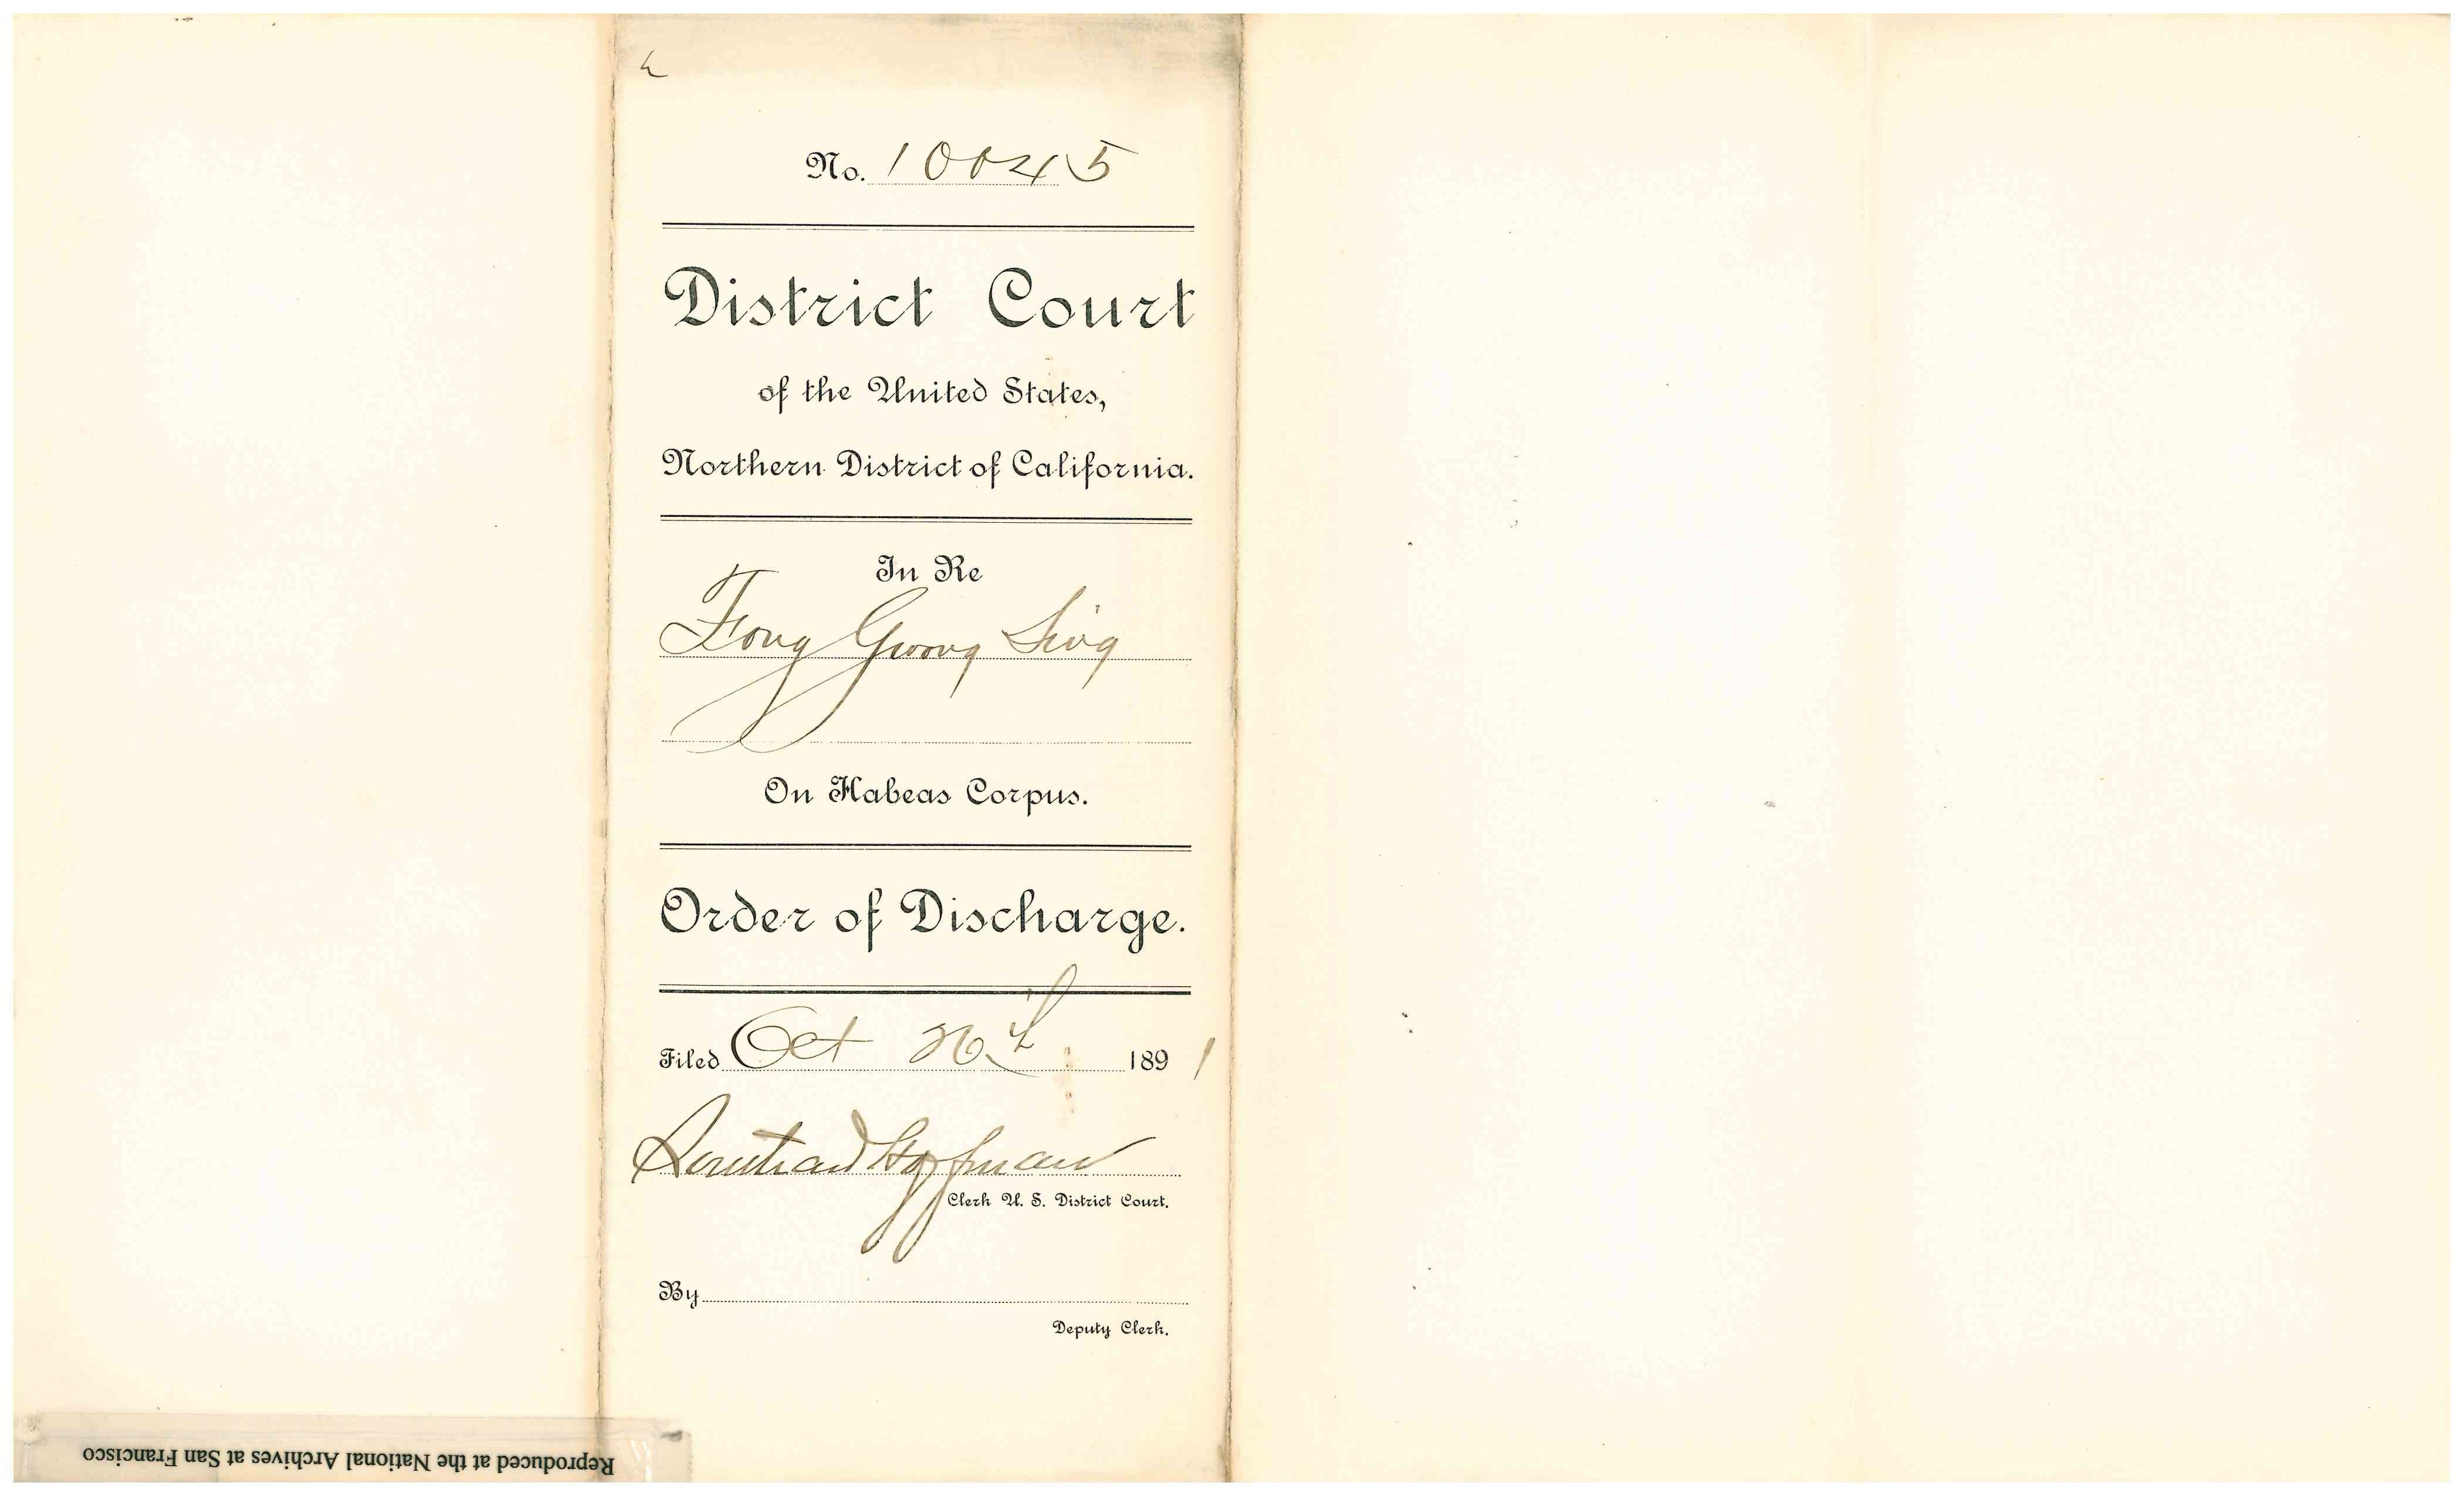 No. 10045
District Court
of the United States,
Northern District of California.
In Re
Fong Gwong Sing
On Habeas Corpus.
Order of Discharge.
Filed Oct 26th 1891
Southard Hoffman
Clerk U. S. District Court.
By
Deputy Clerk.
Reproduced at the National Archives at San Francisco